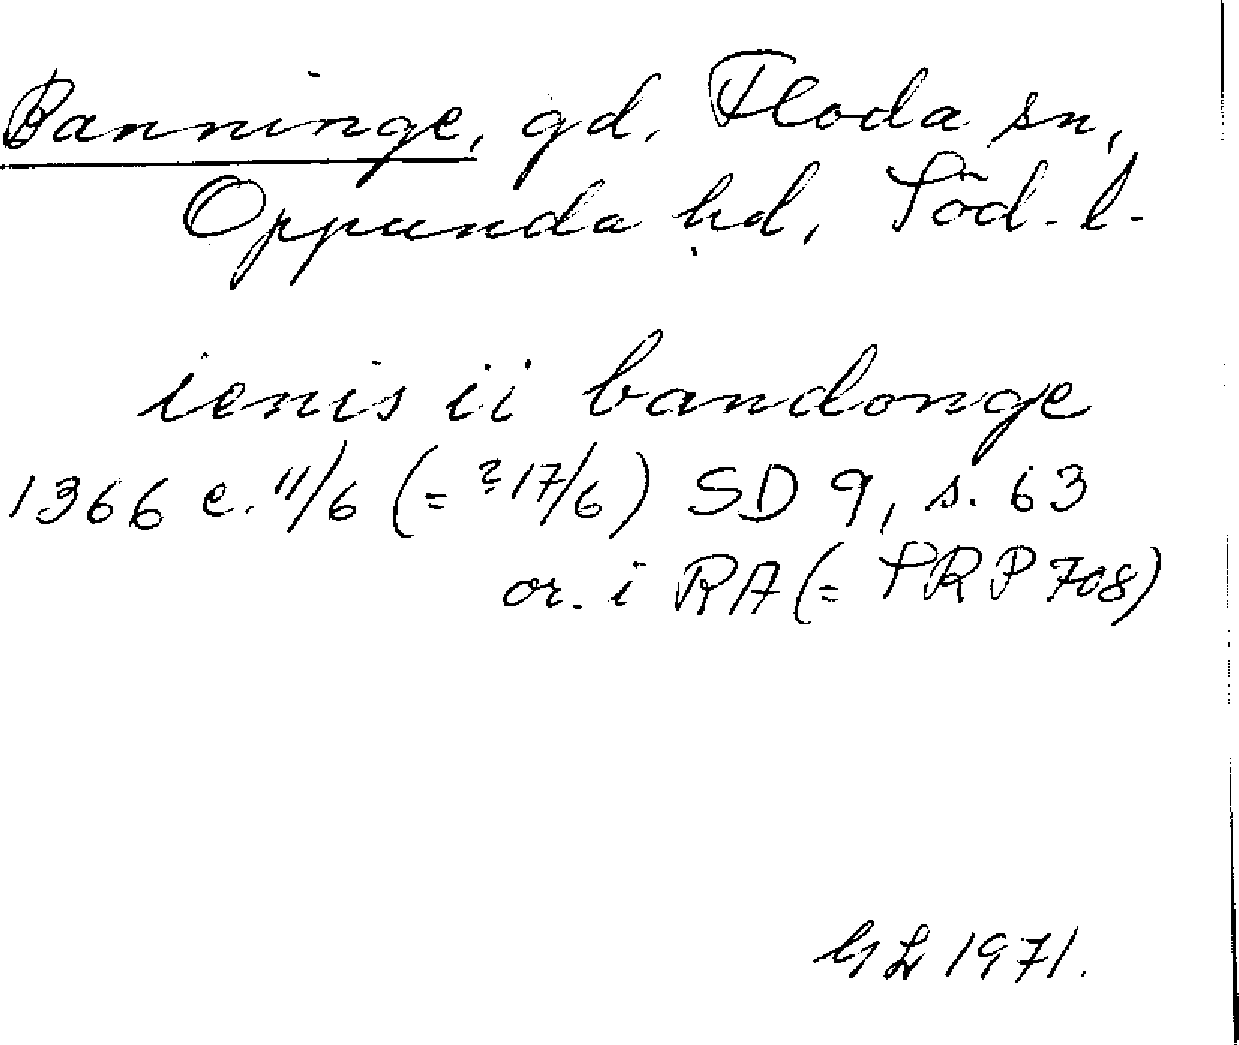 Banninge, gd, Floda sn,
Oppunda hd, Söd. l.
ienis ii bandonge
1366 e. 11/6 (= ?17/6) SD 9, s. 63
or. i RA (= SRP 708)
GL 1971.